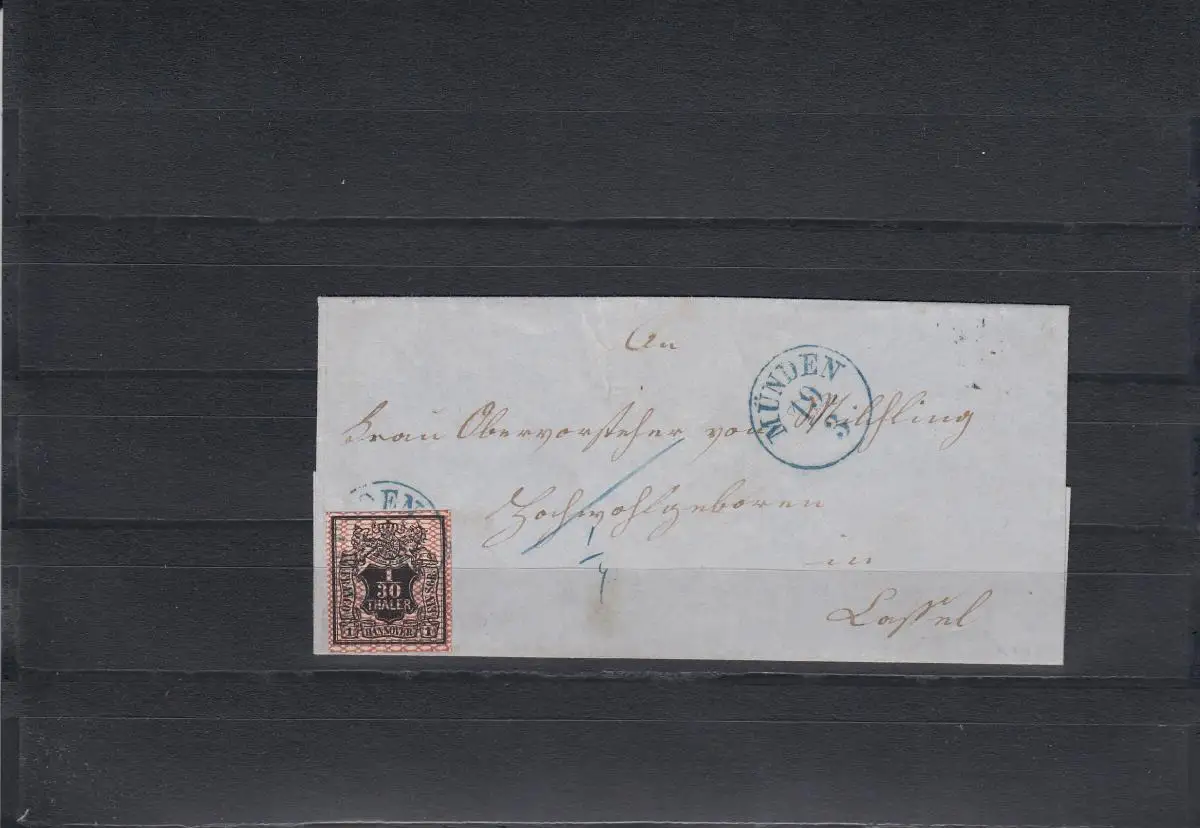 An
MÜNDEN
19
3
Frau Obervorsteher von Milchling
Hochwohlgeboren
in
Cassel
1/4
DEN
1
30
THALER
HANNOVER
1
1